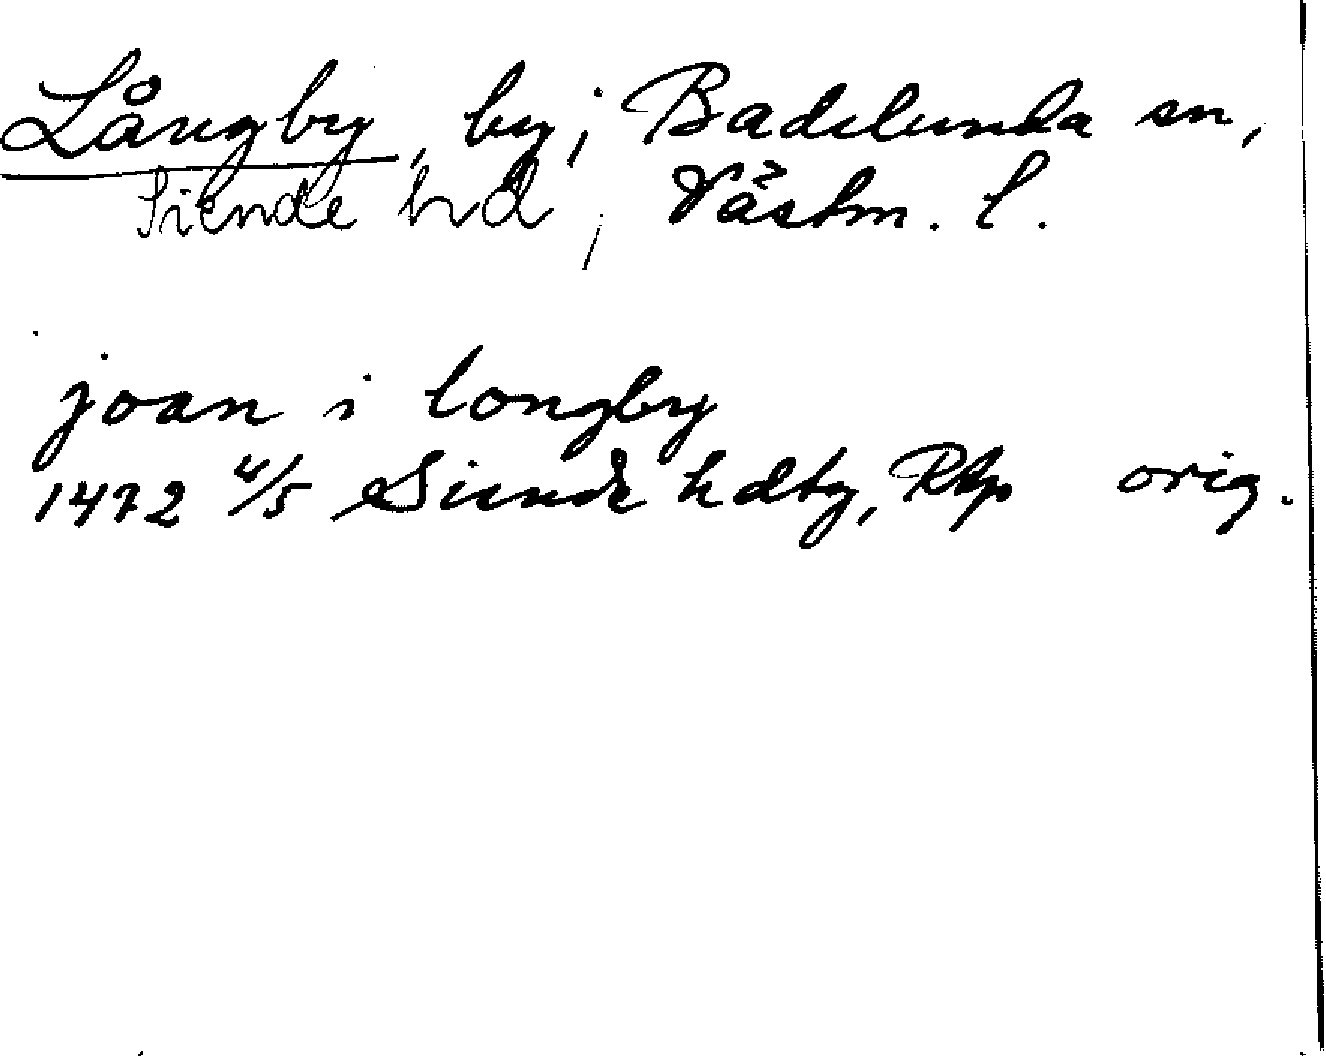 Långby, by, Badelunda sn,
Siende hd, Västm. l.
joan i longby
1472 4/5 Siende hdtg, Rkp orig.